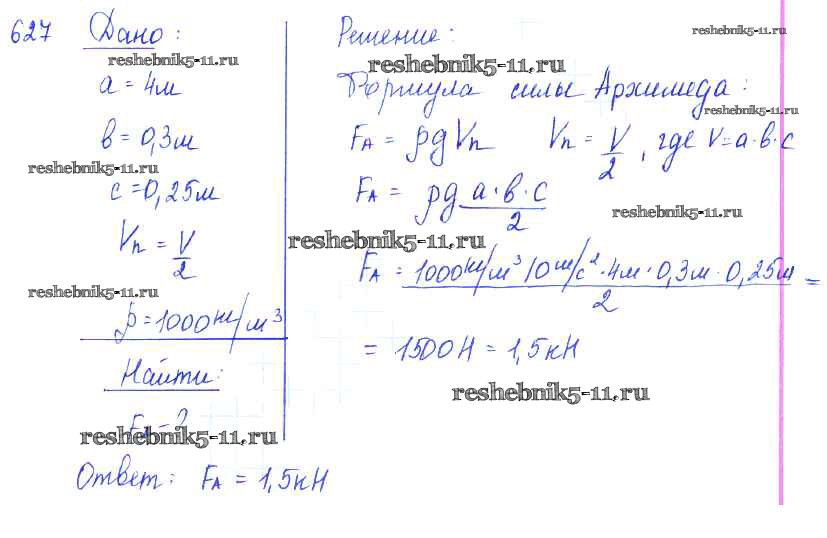 627 Дано:
reshebnik5-11.ru
a = 4м
в = 0,3м
reshebnik5-11.ru
c = 0,25м
Vп = V/2
reshebnik5-11.ru
ρ = 1000 кг/м³
Найти:
FА - ?
reshebnik5-11.ru
Ответ: FА = 1,5 кН
Решение:
reshebnik5-11.ru
reshebnik5-11.ru
Формула силы Архимеда:
reshebnik5-11.ru
FА = ρgVп Vп = V/2, где V = a·в·c
FА = ρg a·в·c/2
reshebnik5-11.ru
reshebnik5-11.ru
FА = 1000 кг/м³ 10 м/с² · 4м · 0,3м · 0,25м / 2 =
= 1500 Н = 1,5 кН
reshebnik5-11.ru